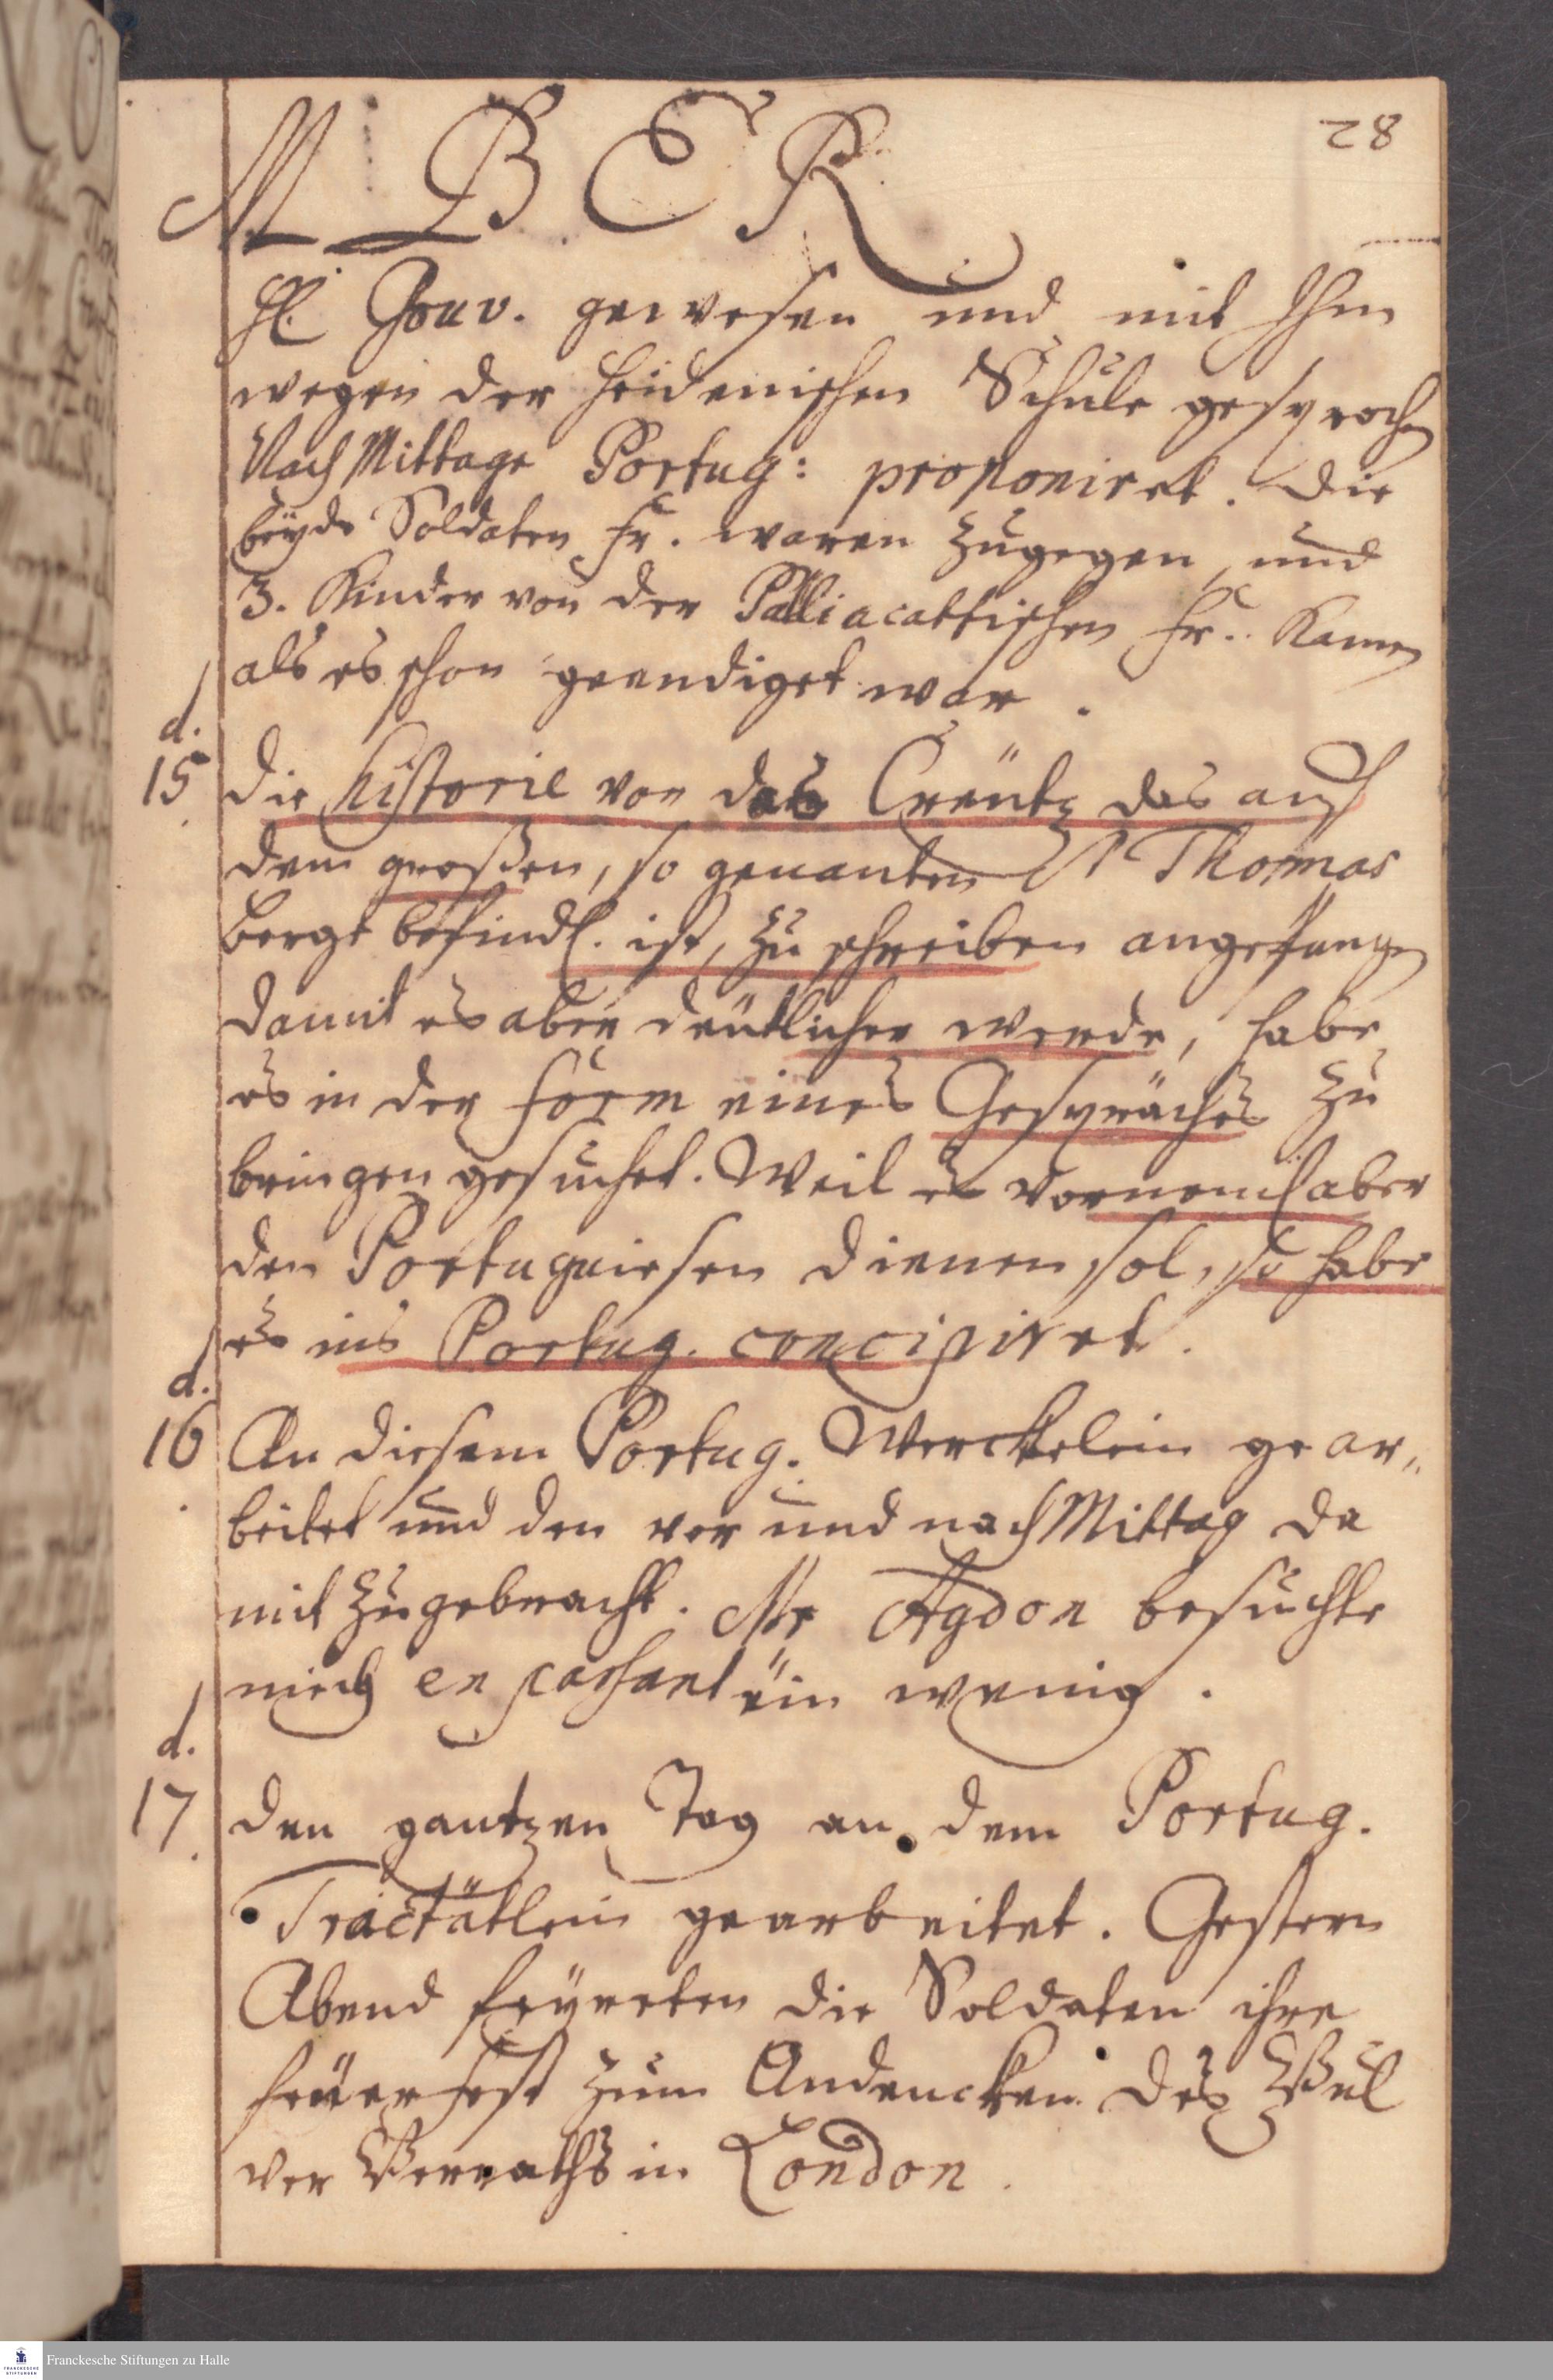 28
M B E R
H. Gouv. gewesen und mit Ihm
wegen der heidenischen Schule gesprochen
Nach Mittage Portug: proponiret. Die
beyde Soldaten Fr. waren zugegen, und
3. Kinder von der Palliacattischen Fr. kamen
als es schon geendiget war.
d.
15 Die historie von das Creütz das auf
dem großen, so genanten St Thomas
Berge befindl. ist, zu schreiben angefangen
damit es aber deütlicher werde, habe
es in der form eines Gesprächs zu
bringen gesuchet. Weil es vornemlich aber
den Portuguiesen dienen sol, so habe
es ins Portug. concipiret.
d.
16 An diesem Portug. Werckelein gear„
beitet und den vor und nach Mittag da
mit zugebracht. Mr Agdon besuchte
mich en passant ein wenig.
d.
17 den gantzen Tag an dem Portug.
Tractätlein gearbeitet. Gestern
Abend feyerten die Soldaten ihre
feüerfest zum Andencken des Pul
ver Verraths in London.
Franckesche Stiftungen zu Halle
FRANCKESCHE
STIFTUNGEN